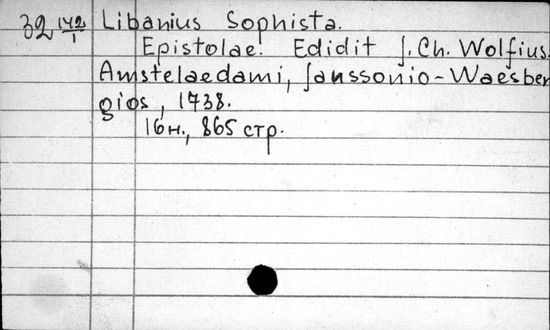 32 142/1 Libanius Sophista.
Epistolae. Edidit J. Ch. Wolfius.
Amstelaedami, Janssonio-Waesber
gios, 1738.
16н., 865 стр.